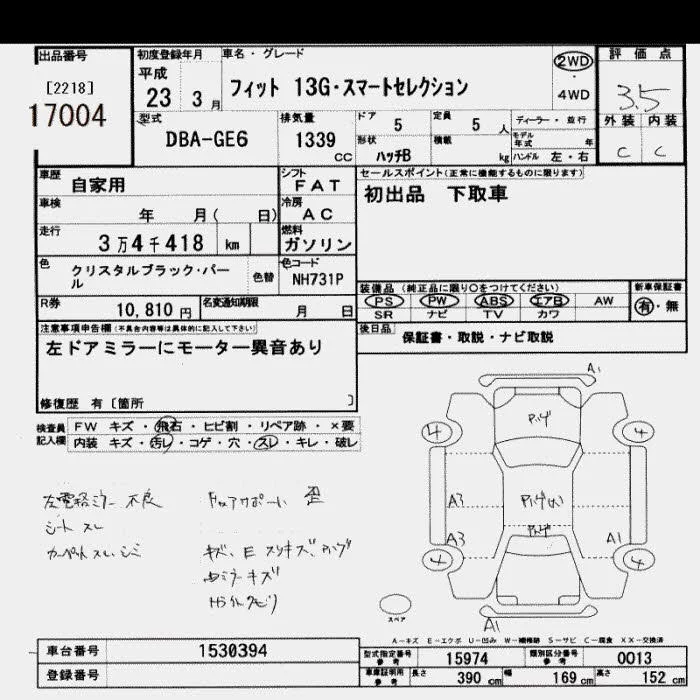 出品番号
[2218]
17004
初度登録年月
平成
23 3月
車名・グレード
フィット 13G・スマートセレクション
2WD
4WD
評価点
3.5
外装 内装
C C
型式
DBA-GE6
排気量
1339
CC
ドア
5
定員
5人
形状
ハッチB
積載
kg
ディーラー・並行
モデル年式 年
ハンドル 左・右
車歴
自家用
車検
年 月( 日)
走行
3万4千418 km
色
クリスタルブラック・パール
色替
シフト
FAT
冷房
AC
燃料
ガソリン
色コード
NH731P
R券
10,810円
名変通知期限
月 日
セールスポイント(正常に機能するものに限ります)
初出品 下取車
装備品(純正品に限り○をつけてください)
PS PW ABS エアB AW
SR ナビ TV カワ
新車保証書
有・無
後日品
保証書・取説・ナビ取説
注意事項申告欄(不具合内容等は具体的に記入して下さい)
左ドアミラーにモーター異音あり
修復歴 有〔箇所 〕
検査員記入欄
FW キズ・飛石・ヒビ割・リペア跡・×要
内装 キズ・汚レ・コゲ・穴・スレ・キレ・破レ
左電格ミラー 不良
シート スレ
カーペットスレ、シミ
歪
キズ、E
キズ
A1
4
4
A3
A3
A1
4
4
A1
スペア
A-キズ E-エクボ U-凹み W-補修跡 S-サビ C-腐食 XX-交換済
車台番号
1530394
登録番号
型式指定番号
参考
15974
類別区分番号
参考
0013
車庫証明用
参考
長さ
390 cm
幅
169 cm
高さ
152 cm